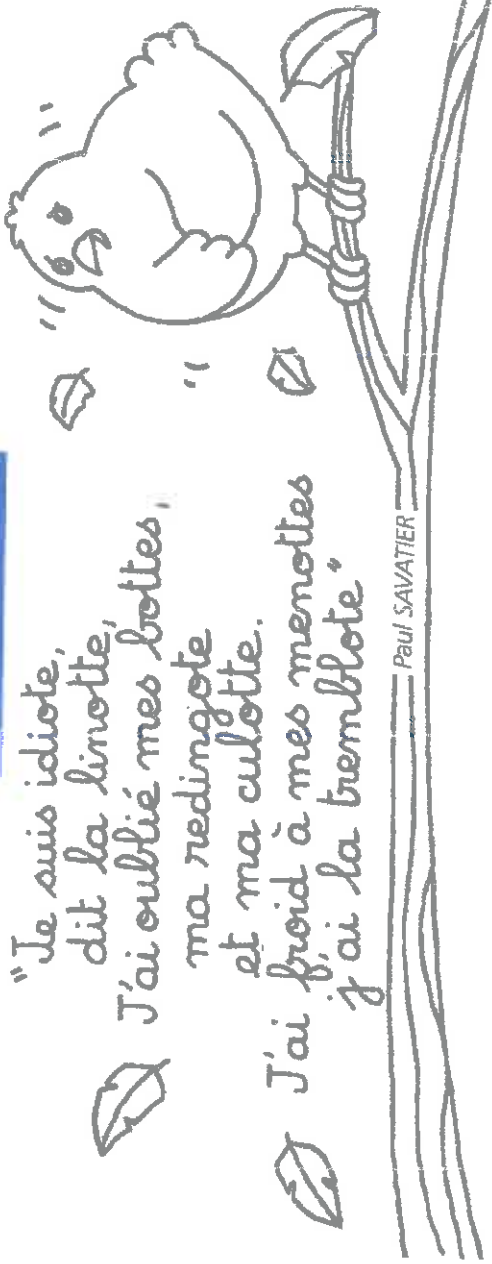 "Je suis idiote,
dit la linotte,
J'ai oublié mes bottes,
ma redingote
et ma culotte.
J'ai froid à mes menottes
j'ai la tremblote"
Paul SAVATIER